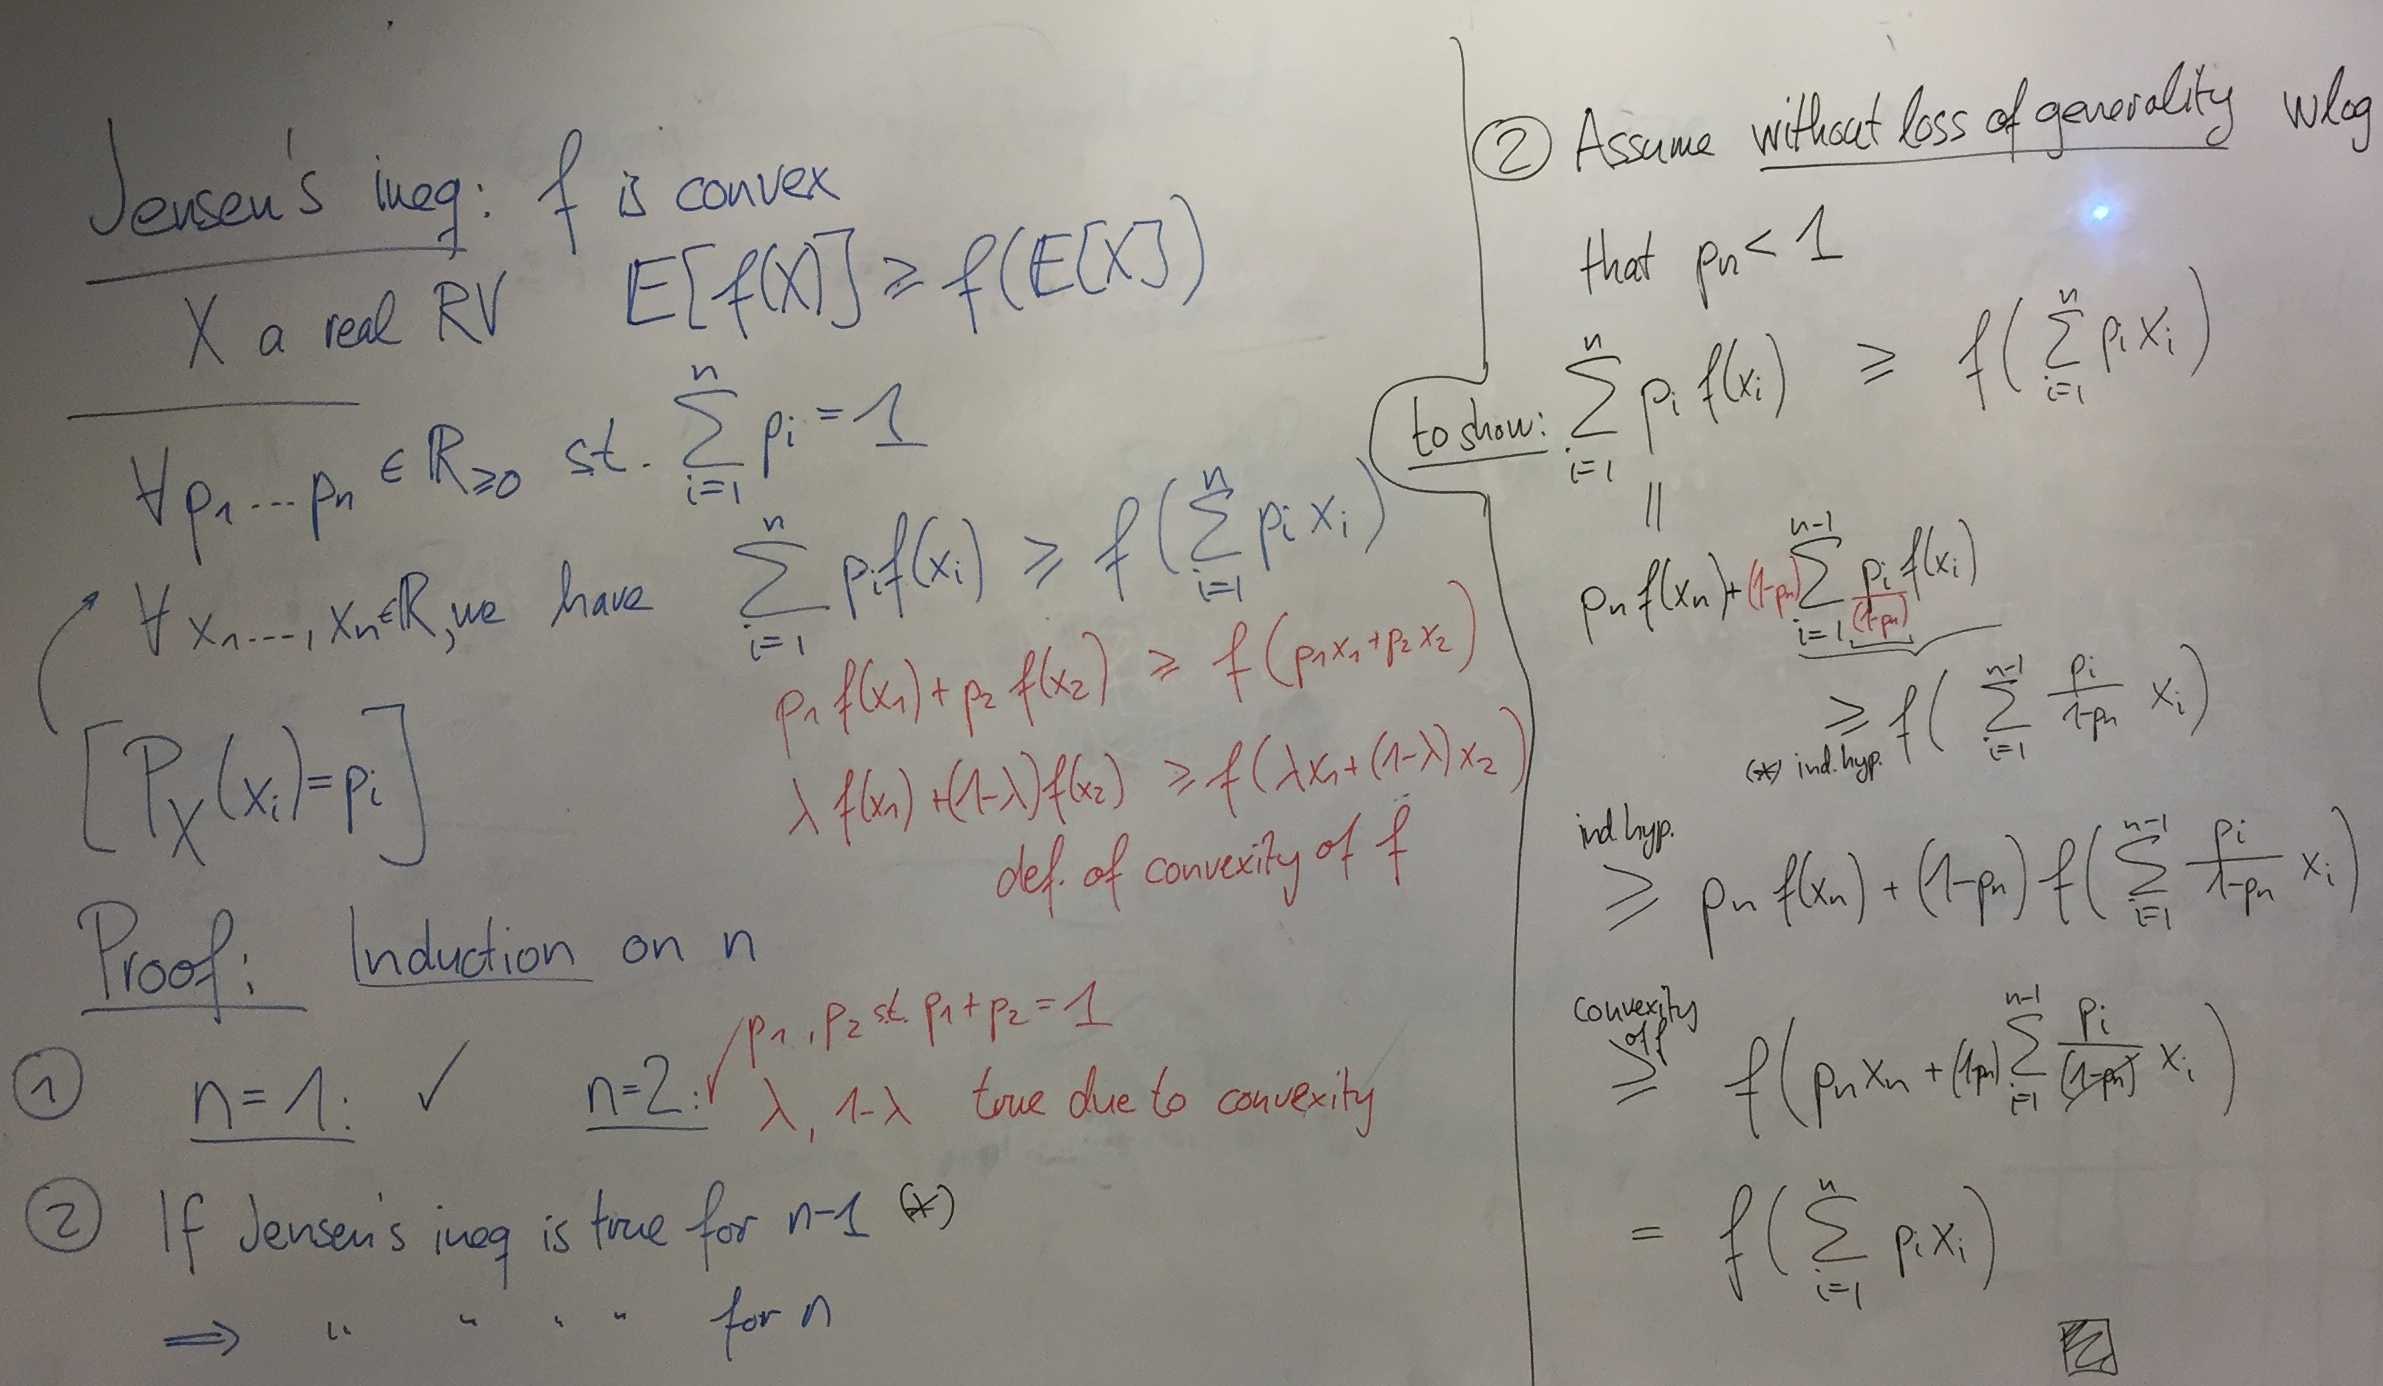 Jensen's ineq: f is convex
X a real RV E[f(X)] ≥ f(E[X])
∀ p₁...pₙ ∈ ℝ≥0 s.t. ∑_{i=1}^{n} pᵢ = 1
∀ x₁...,xₙ∈ℝ, we have ∑_{i=1}^{n} pᵢf(xᵢ) ≥ f(∑_{i=1}^{n} pᵢxᵢ)
p₁f(x₁)+p₂f(x₂) ≥ f(p₁x₁+p₂x₂)
[P_X(xᵢ)=pᵢ]
λf(x₁)+(1-λ)f(x₂) ≥ f(λx₁+(1-λ)x₂)
def. of convexity of f
Proof: Induction on n
① n=1: ✓ n=2: ✓ p₁, p₂ s.t. p₁+p₂=1
λ, 1-λ true due to convexity
② If Jensen's ineq is true for n-1 (*)
⇒ " " " " for n
② Assume without loss of generality wlog
that pₙ < 1
to show: ∑_{i=1}^{n} pᵢ f(xᵢ) ≥ f(∑_{i=1}^{n} pᵢxᵢ)
||
pₙf(xₙ)+(1-pₙ)∑_{i=1}^{n-1} pᵢ/(1-pₙ) f(xᵢ)
≥ f(∑_{i=1}^{n-1} pᵢ/(1-pₙ) xᵢ)
(*) ind.hyp.
ind.hyp.
≥ pₙf(xₙ)+(1-pₙ)f(∑_{i=1}^{n-1} pᵢ/(1-pₙ) xᵢ)
convexity
of f
≥ f(pₙxₙ+(1-pₙ)∑_{i=1}^{n-1} pᵢ/(1-pₙ) xᵢ)
= f(∑_{i=1}^{n} pᵢxᵢ)